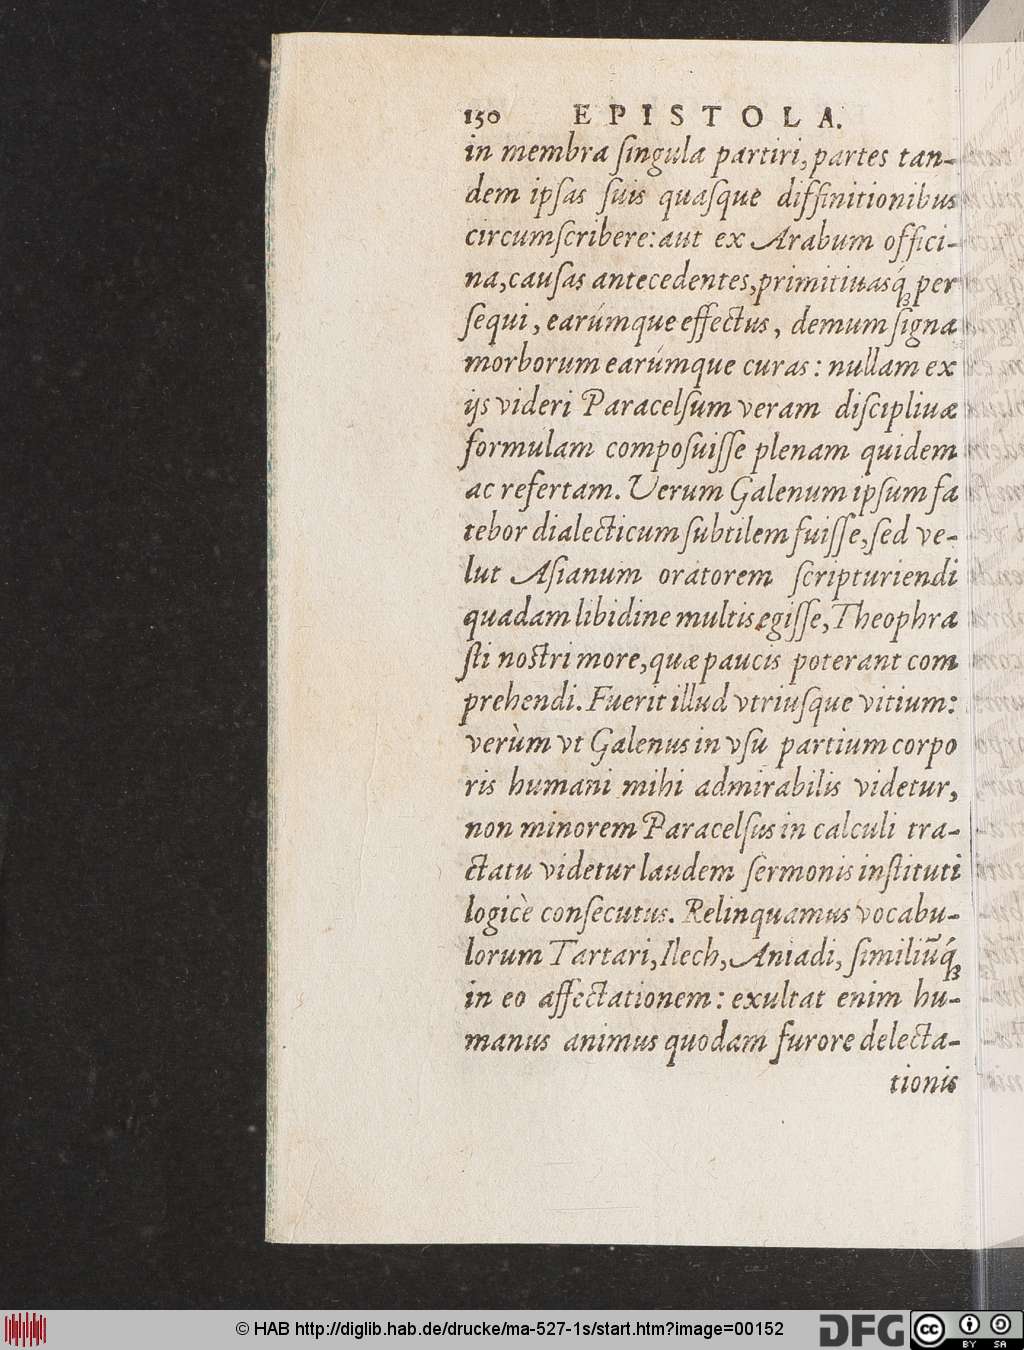 150 EPISTOLA.
in membra ſingula partiri, partes tan-
dem ipſas ſuis quaſque diffinitionibus
circumſcribere: aut ex Arabum offici-
na, cauſas antecedentes, primitiuasq́ꝫ per
ſequi, earúmque effectus, demum ſigna
morborum earúmque curas: nullam ex
ijs videri Paracelſum veram diſcipliuæ
formulam compoſuiſſe plenam quidem
ac refertam. Verum Galenum ipſum fa
tebor dialecticum ſubtilem fuiſſe, ſed ve-
lut Aſianum oratorem ſcripturiendi
quadam libidine multis egiſſe, Theophra
ſti noſtri more, quæ paucis poterant com
prehendi. Fuerit illud vtriuſque vitium:
verùm vt Galenus in vſu partium corpo
ris humani mihi admirabilis videtur,
non minorem Paracelſus in calculi tra-
ctatu videtur laudem ſermonis inſtituti
logicè conſecutus. Relinquamus vocabu-
lorum Tartari, Ilech, Aniadi, ſimiliūq́ꝫ
in eo affectationem: exultat enim hu-
manus animus quodam furore delecta-
tionis
© HAB http://diglib.hab.de/drucke/ma-527-1s/start.htm?image=00152
DFG
cc BY SA